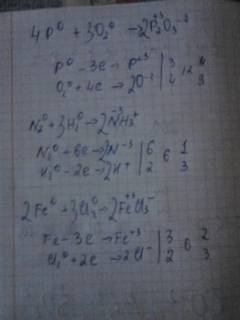 4P⁰ + 3O₂⁰ → 2P₂⁺³O₃⁻²
P⁰ - 3e → P⁺³ | 3 | 12 |
O₂⁰ + 4e → 2O⁻² | 4 | 3
N₂⁰ + 3H₂⁰ → 2N⁻³H₃⁺
N₂⁰ + 6e → 2N⁻³ | 6 | 6 | 1
H₂⁰ - 2e → 2H⁺ | 2 | 3
2Fe⁰ + 3Cl₂⁰ → 2Fe⁺³Cl₃⁻
Fe - 3e → Fe⁺³ | 3 | 6 | 2
Cl₂⁰ + 2e → 2Cl⁻ | 2 | 3